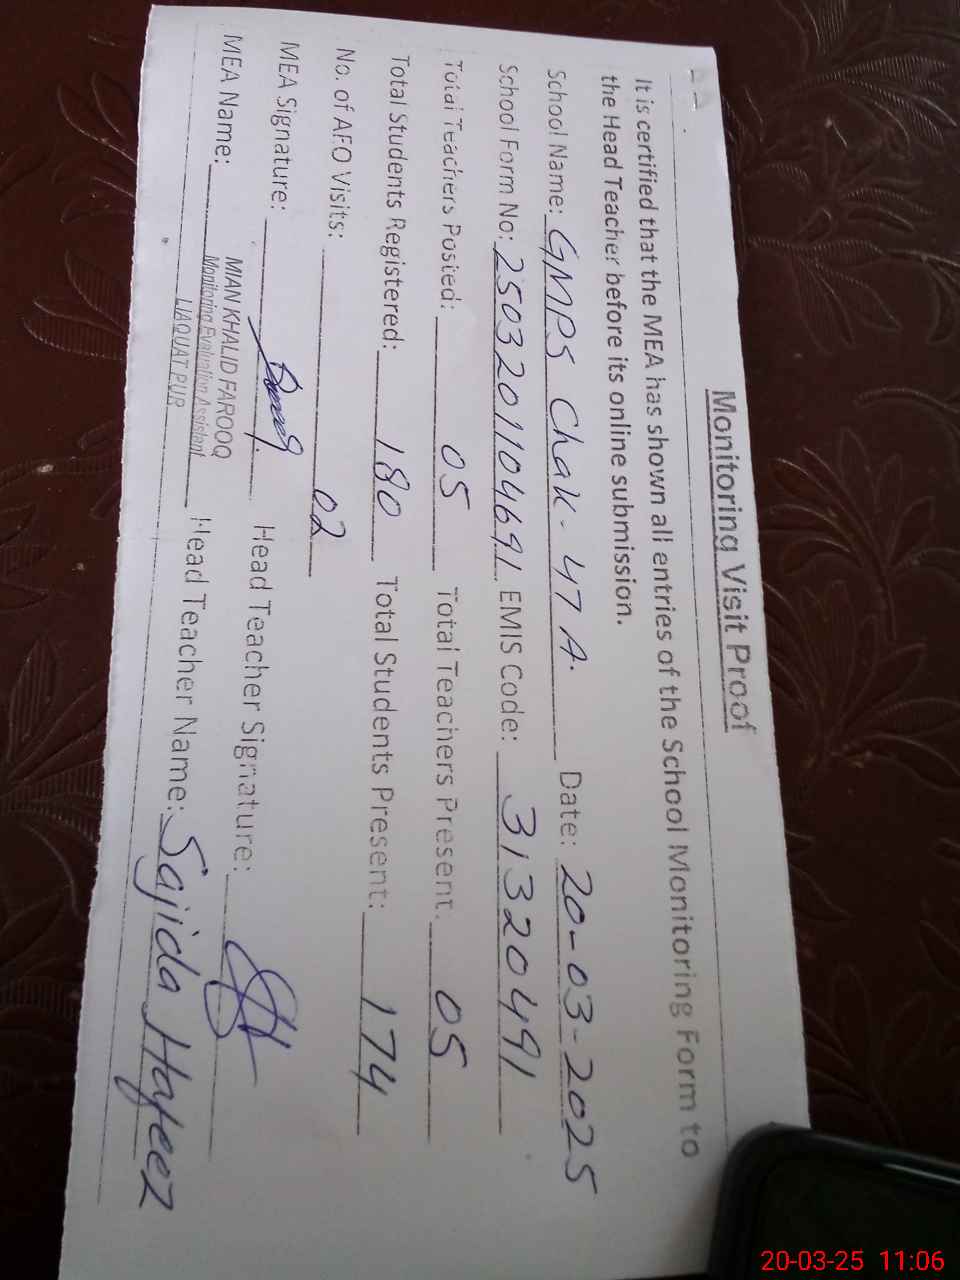 Monitoring Visit Proof
It is certified that the MEA has shown all entries of the School Monitoring Form to
the Head Teacher before its online submission.
School Name: GMPS Chak. 47 A. Date: 20-03-2025
School Form No: 25032011046 91 EMIS Code: 31320491
Total Teachers Posted: 05 Total Teachers Present. 05
Total Students Registered: 180 Total Students Present: 174
No. of AFO Visits: 02
MEA Signature: Head Teacher Signature:
MEA Name: MIAN KHALID FAROOQ Head Teacher Name: Sajida Hafeez
Monitoring Evaluation Assistant
LIAQUAT PUR
20-03-25 11:06